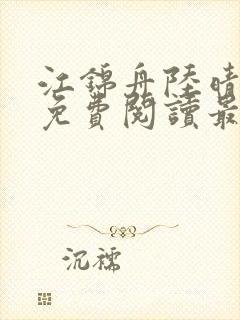 江錦舟陸晴
免費閱讀最
沉襦